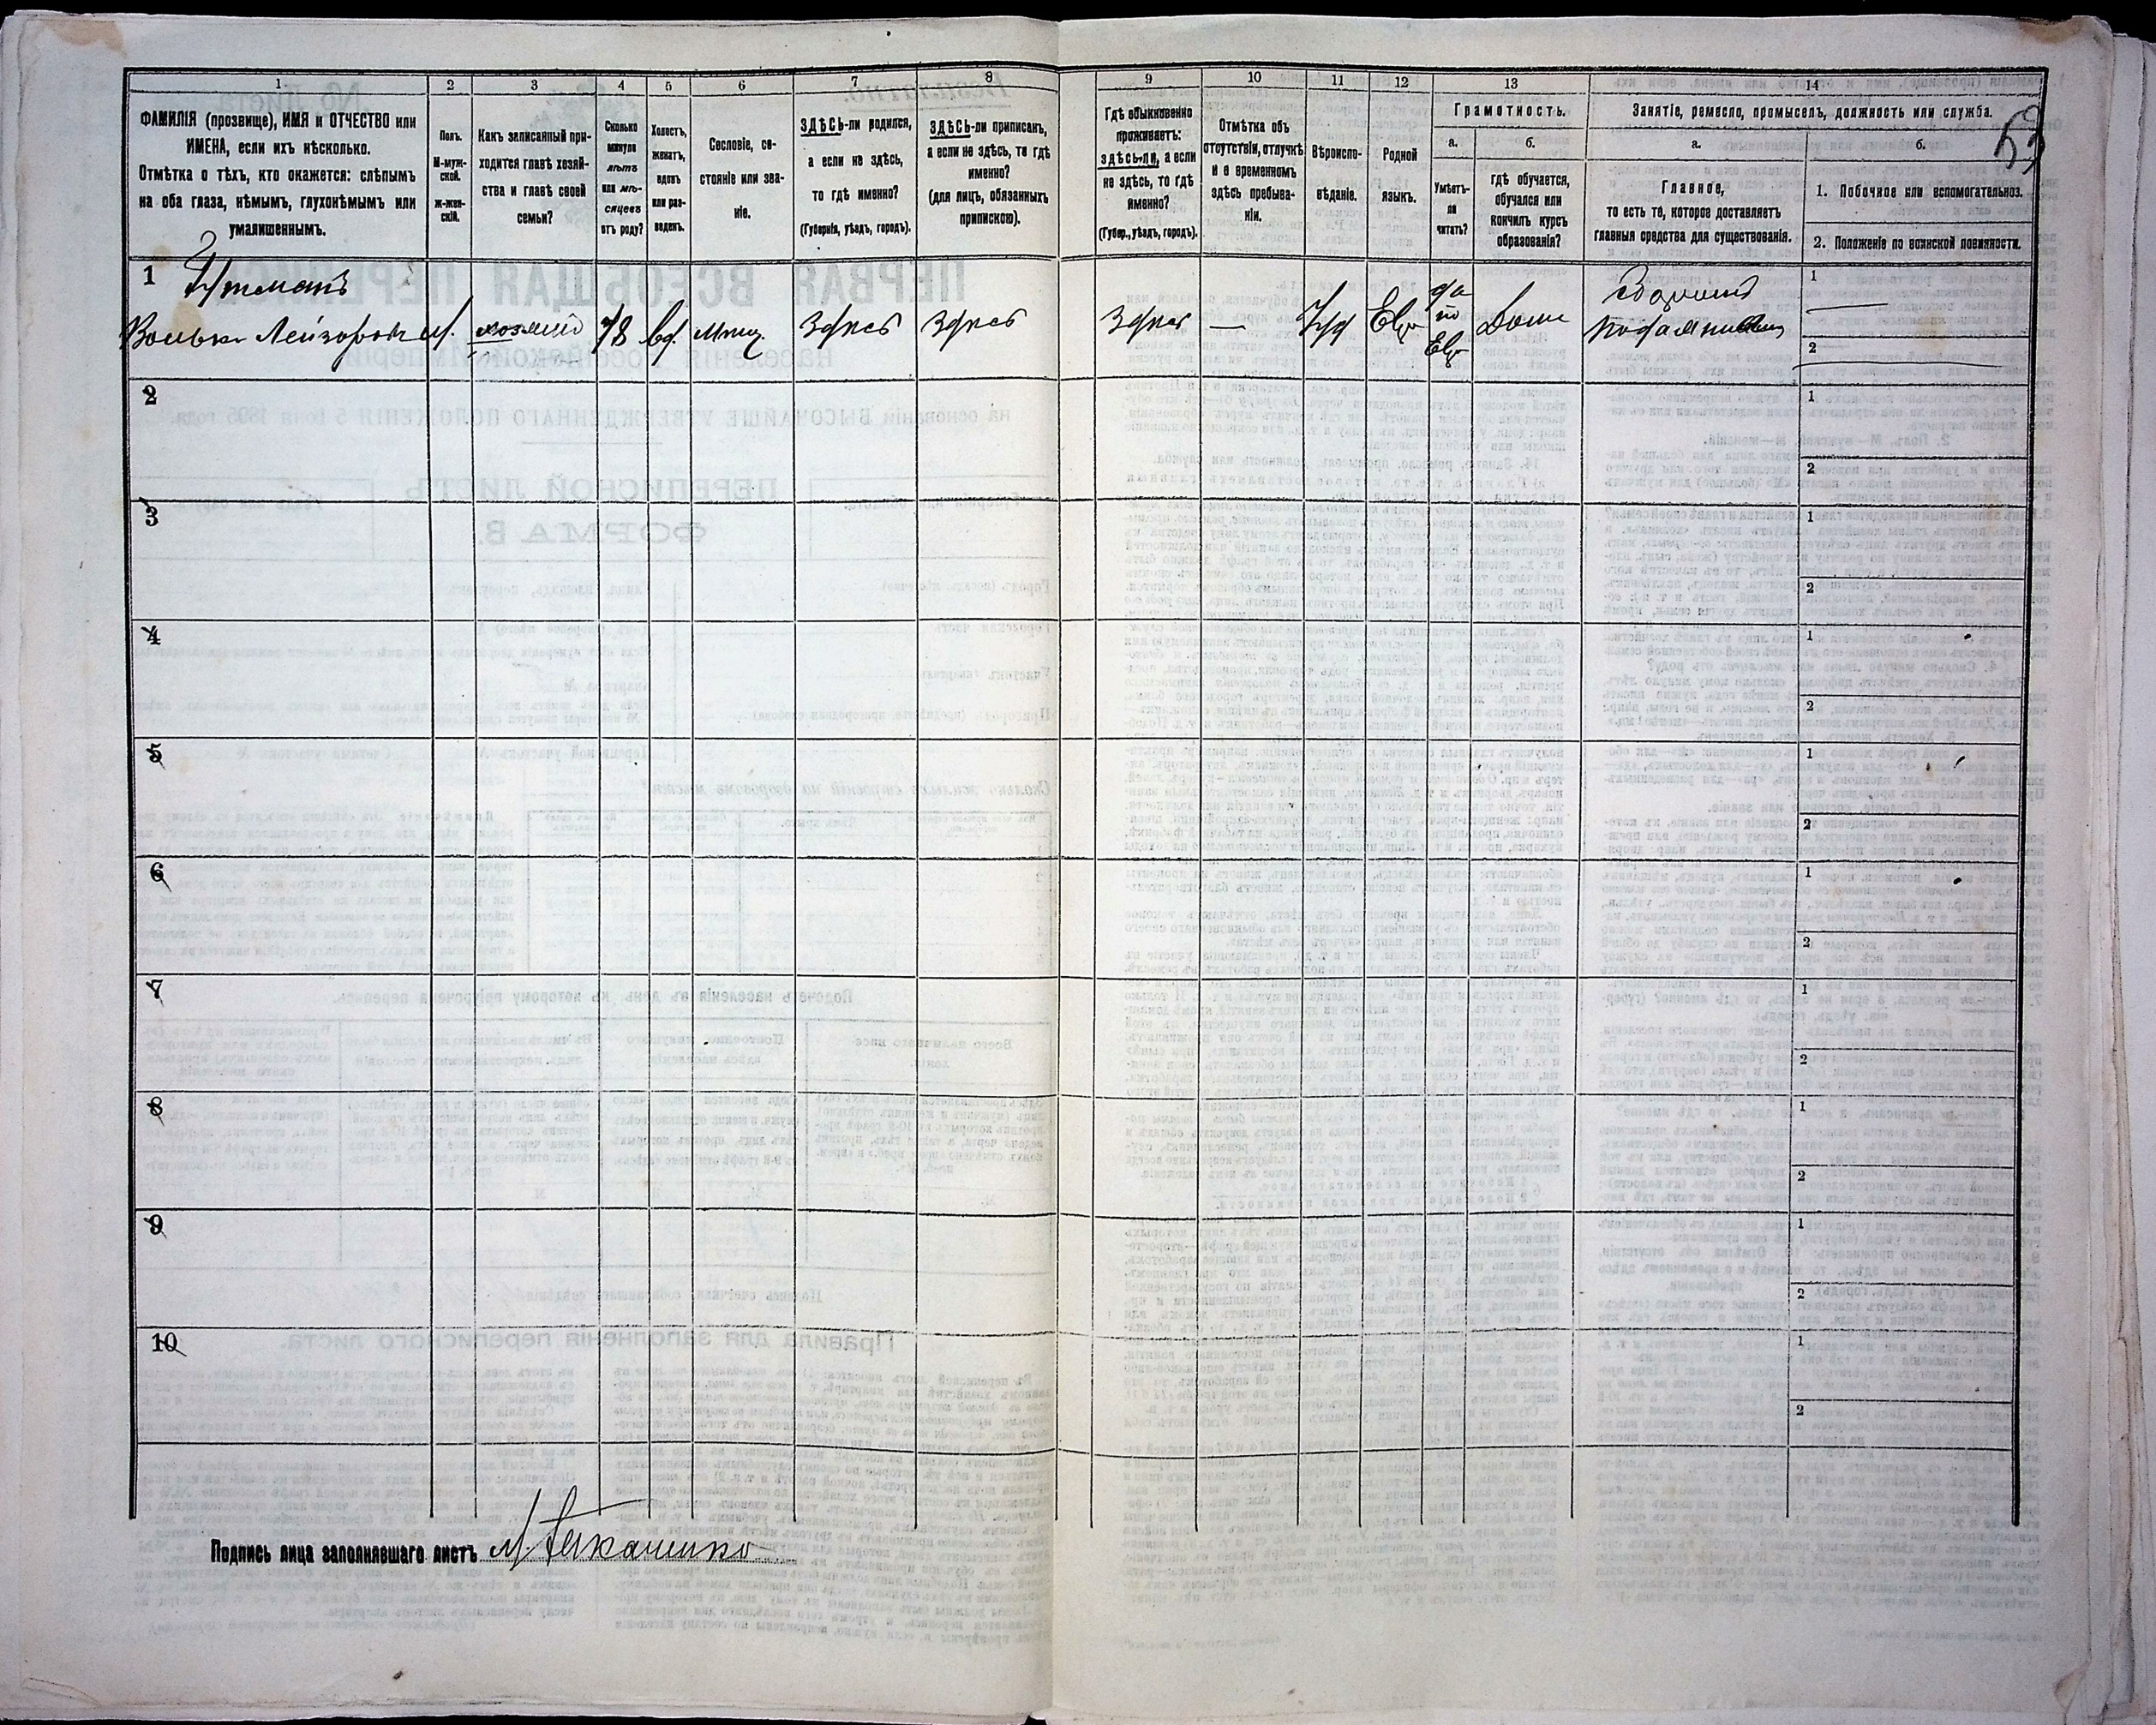 1
2
3
4
5
6
7
8
9
10
11
12
13
14
ФАМИЛІЯ (прозвище), ИМЯ и ОТЧЕСТВО или
ИМЕНА, если ихъ нѣсколько.
Отмѣтка о тѣхъ, кто окажется: слѣпымъ
на оба глаза, нѣмымъ, глухонѣмымъ или
умалишеннымъ.
Полъ.
М-муж-
ской.
ж-жен-
скій.
Какъ записанный при-
ходится главѣ хозяй-
ства и главѣ своей
семьи?
Сколько
минуло
лѣтъ
или мѣ-
сяцевъ
отъ роду?
Холостъ,
женатъ,
вдовъ
или раз-
веденъ.
Сословіе, со-
стояніе или зва-
ніе.
ЗДѢСЬ-ли родился,
а если не здѣсь,
то гдѣ именно?
(Губернія, уѣздъ, городъ).
ЗДѢСЬ-ли приписанъ,
а если не здѣсь, то гдѣ
именно?
(для лицъ, обязанныхъ
припискою).
Гдѣ обыкновенно
проживаетъ:
здѣсь-ли, а если
не здѣсь, то гдѣ
именно?
(Губер., уѣздъ, городъ).
Отмѣтка объ
отсутствіи, отлучкѣ
и о временномъ
здѣсь пребыва-
ніи.
Вѣроиспо-
вѣданіе.
Родной
языкъ.
Грамотность.
а.
Умѣетъ-
ли
читать?
б.
гдѣ обучается,
обучался или
кончилъ курсъ
образованія?
Занятіе, ремесло, промыселъ, должность или служба.
а.
Главное,
то есть то, которое доставляетъ
главныя средства для существованія.
б.
1. Побочное или вспомогательное.
2. Положеніе по воинской повинности.
1
Лейзоровъ
м.
хозяинъ
78
вд.
Мѣщ.
Здѣсь
Здѣсь
Здѣсь
—
Іуд
Евр
да
по
Евр
Дома
1
2
2
1
2
3
1
2
4
1
2
5
1
2
6
1
2
7
1
2
8
1
2
9
1
2
10
1
2
Подпись лица заполнявшаго листъ